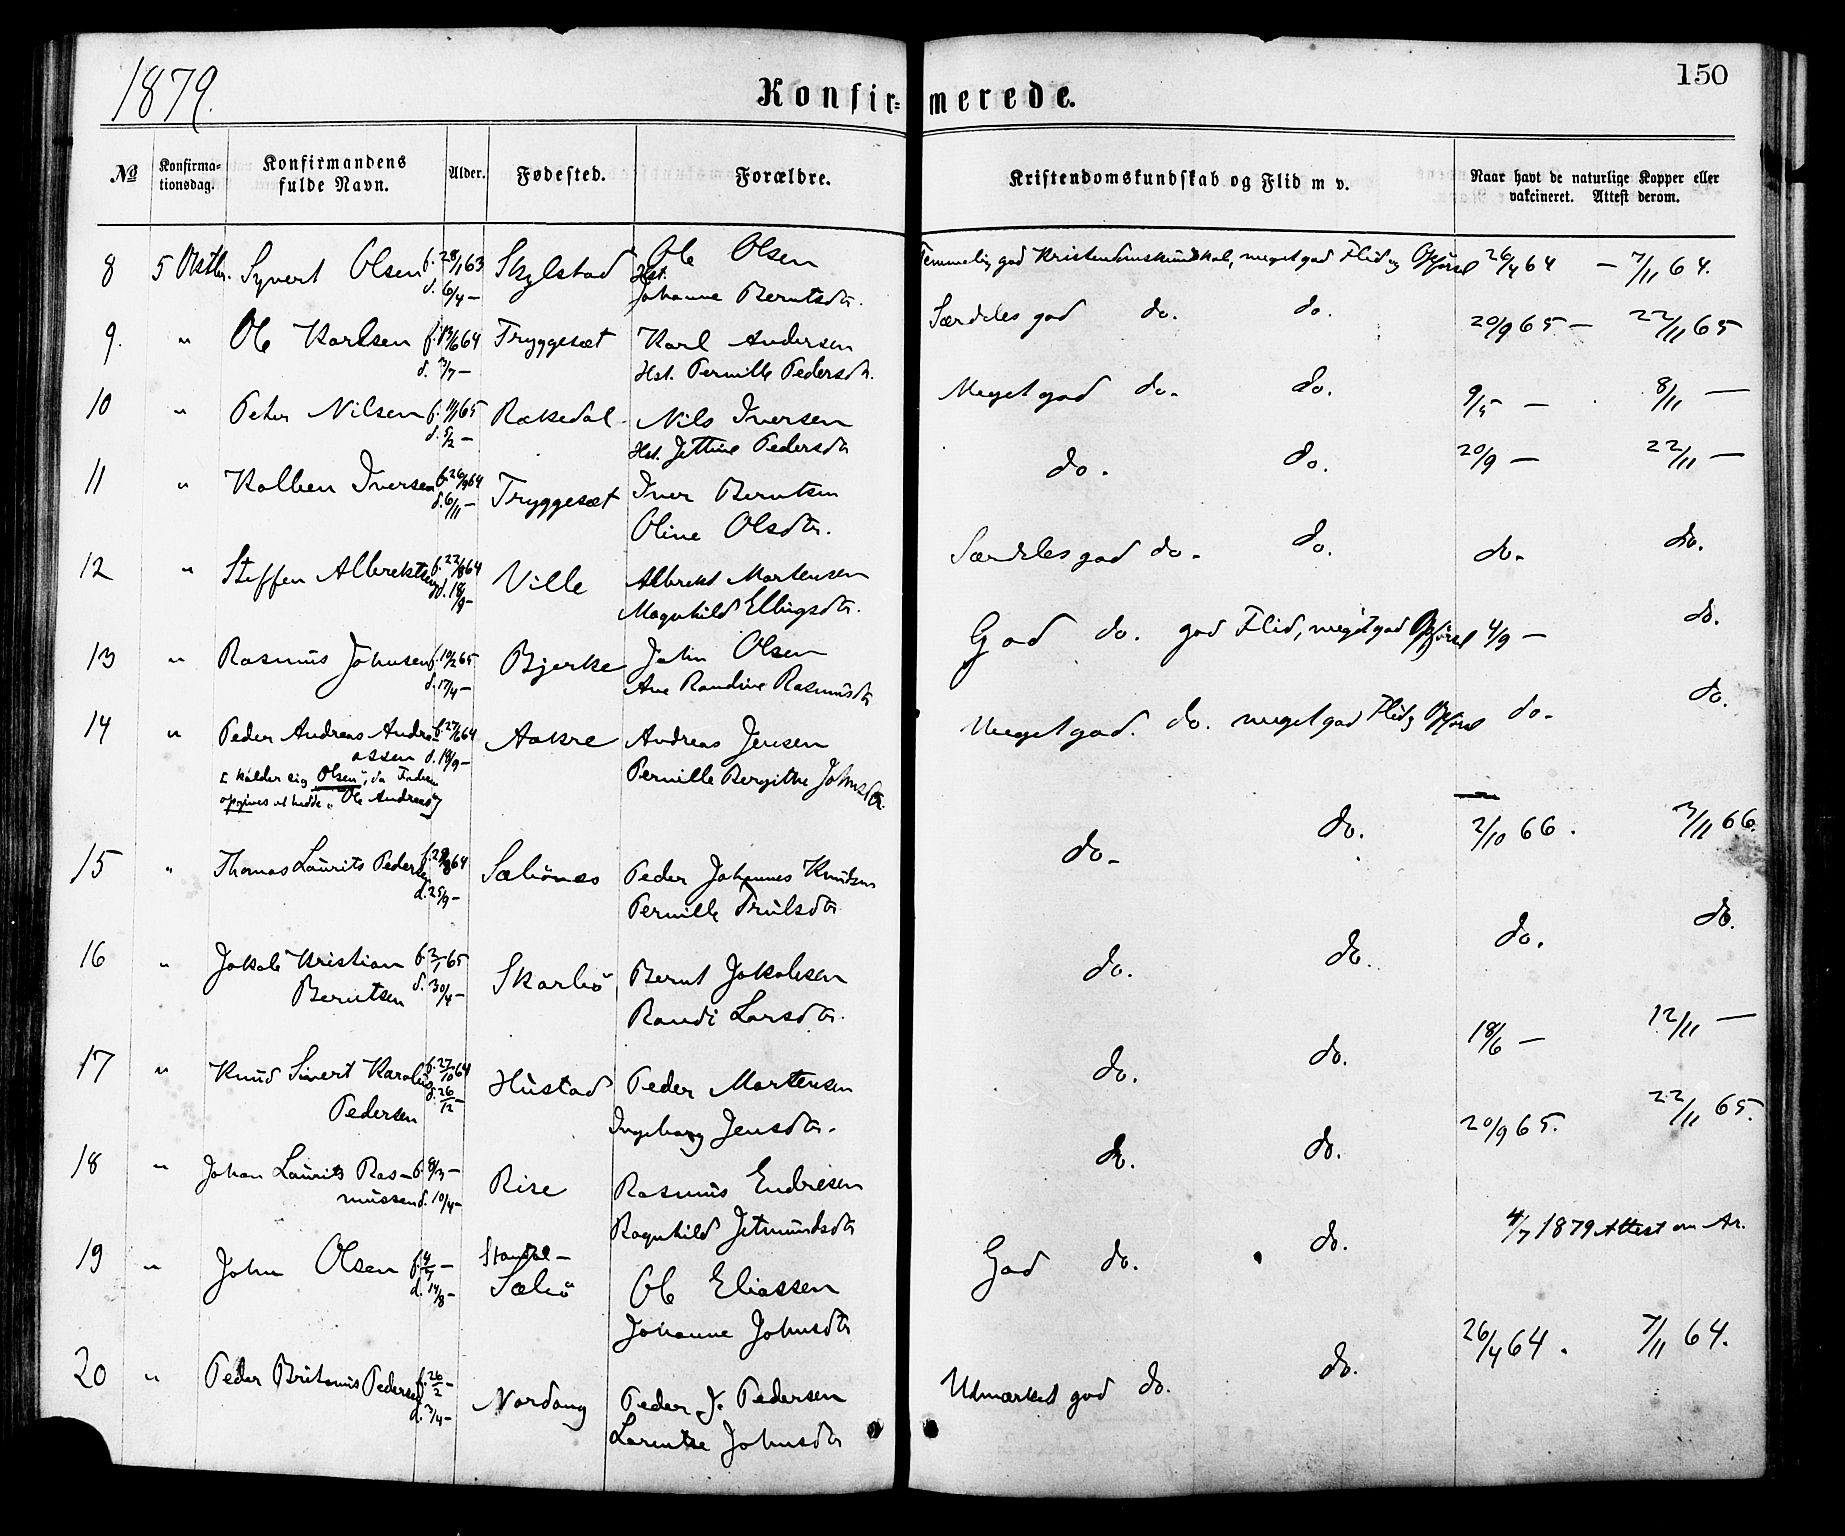 1879.
Konfir=merede.
150
№
Konfirma-
tionsdag.
Konfirmandens
fulde Navn.
Alder.
Fødested.
Forældre.
Kristendomskundskab og Flid m v.
Naar havt de naturlige Kopper eller
vakcineret. Attest derom.
8 5 Oktbr. Syvert Olsen f. 28/1 63 Skylstad Ole Olsen Temmelig god Kristendomskundskab, meget god Flid og Opførsel 26/4 64 — 7/11 64.
d. 6/4 — Hst. Johanne Berntsdtr.
9. " Ole Karlsen f. 13/6 64 Tryggesæt Karl Andersen Særdeles god do. do. 20/9 65 — 22/11 65
d. 3/7 — Hst. Pernille Pedersdtr.
10 " Peter Nilsen f. 11/1 65 Rakedal Nils Iversen Meget god do. do. 9/5 — 8/11 —
d. 5/2 — Hst. Jettine Pedersdtr
11 " Kolben Iversen f. 26/9 64 Tryggesæt Iver Berntsen do. do. 20/9 — 22/11 —
d. 6/11 — Oline Olsdtr.
12 " Steffen Albrektsen f. 22/8 64 Ville Albrekt Martensen Særdeles god do. do. do. do.
d. 18/9 — Magnhild Ellingsdtr.
13 " Rasmus Johnsen f. 10/2 65 Bjerke John Olsen God do. god Flid, meget god Opførsel 4/9 — do.
d. 17/4 — Ane Randine Rasmusdtr
14 " Peder Andreas Andre- f. 27/6 64 Aakre Andreas Jensen Meget god. do. meget god Flid og Opførsel do. do.
assen d. 19/9 — Pernille Bergithe Johnsdtr.
kalder sig "Olsen", da Faderen
opgives at hedde "Ole Andreas"
15 " Thomas Laurits Pedersen f. 29/8 64 Sæbönes Peder Johannes Knudsen do. do. 2/10 66. 3/11 66.
d. 25/9 — Pernille Trulsdtr
16 " Jakob Kristian f. 2/1 65 Skarbö Bernt Jakobsen do. do. do. do.
Berntsen d. 30/4 — Randi Larsdtr.
17 " Knud Sivert Karolus f. 27/10 64 Hustad Peder Martensen do. do. 18/6 — 12/11 —
Pedersen d. 26/12 — Ingeborg Jensdtr.
18 " Johan Laurits Ras- f. 8/3 — Rise Rasmus Endresen do. do. 20/9 65. 22/11 65.
mussen d. 10/4 — Ragnhild Jetmundsdtr
19 " John Olsen f. 4/7 — Standal - Sæbö Ole Eliassen God do. do. 4/7 1879 Attest om Ar.
d. 14/8 — Johanne Johnsdtr
20 " Peder Pedersen f. 26/2 — Nordang Peder J. Pedersen Udmærket god do. do. 26/4 64. 7/11 64.
d. 3/4 — Larentse Johnsdtr